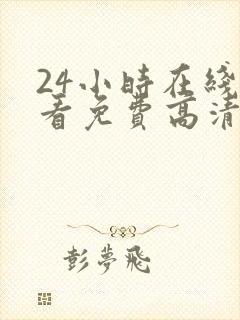 24小時在綫
看免費高清
彭夢飛